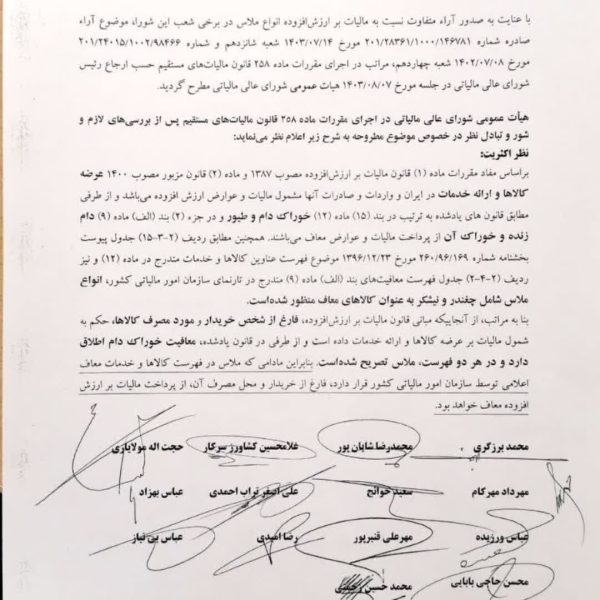 با عنایت به صدور آراء متفاوت نسبت به مالیات بر ارزش‌افزوده انواع ملاس در برخی شعب این شورا، موضوع آراء
صادره شماره ۲۰۱/۲۸۳۶۱/۱۰۰۰/۱۴۶۷۸۱ مورخ ۱۴۰۳/۰۷/۱۴ شعبه شانزدهم و شماره ۲۰۱/۲۴۰۱۵/۱۰۰۲/۹۸۴۶۶
مورخ ۱۴۰۲/۰۷/۰۸ شعبه چهاردهم، مراتب در اجرای مقررات ماده ۲۵۸ قانون مالیات‌های مستقیم حسب ارجاع رئیس
شورای عالی مالیاتی در جلسه مورخ ۱۴۰۳/۰۸/۰۷ هیات عمومی شورای عالی مالیاتی مطرح گردید.
هیأت عمومی شورای عالی مالیاتی، در اجرای مقررات ماده ۲۵۸ قانون مالیات‌های مستقیم پس از بررسی‌های لازم و
شور و تبادل نظر در خصوص موضوع مطروحه به شرح زیر اعلام نظر می‌نماید:
نظر اکثریت:
براساس مفاد مقررات ماده (۱) قانون مالیات بر ارزش‌افزوده مصوب ۱۳۸۷ و ماده (۲) قانون مزبور مصوب ۱۴۰۰ عرضه
کالاها و ارائه خدمات در ایران و واردات و صادرات آنها مشمول مالیات و عوارض ارزش افزوده می‌باشد و از طرفی
مطابق قانون های یادشده به ترتیب در بند (۱۵) ماده (۱۲) خوراک دام و طیور و در جزء (۲) بند (الف) ماده (۹) دام
زنده و خوراک آن از پرداخت مالیات و عوارض معاف می‌باشند. همچنین مطابق ردیف (۲-۳-۱۵) جدول پیوست
بخشنامه شماره ۲۶۰/۹۶/۱۶۹ مورخ ۱۳۹۶/۱۲/۲۳ موضوع فهرست عناوین کالاها و خدمات مندرج در ماده (۱۲) و نیز
ردیف (۲-۴-۲) جدول فهرست معافیت‌های بند (الف) ماده (۹) مندرج در تارنمای سازمان امور مالیاتی کشور، انواع
ملاس شامل چغندر و نیشکر به عنوان کالاهای معاف منظور شده‌است.
بنا به مراتب، از آنجاییکه مبانی قانون مالیات بر ارزش‌افزوده، فارغ از شخص خریدار و مورد مصرف کالاها، حکم به
شمول مالیات بر عرضه کالاها و ارائه خدمات داده است و از طرفی در قانون یادشده، معافیت خوراک دام اطلاق
دارد و در هر دو فهرست، ملاس تصریح شده‌است. بنابراین مادامی که ملاس در فهرست کالاها و خدمات معاف
اعلامی توسط سازمان امور مالیاتی کشور قرار دارد، فارغ از خریدار و محل مصرف آن، از پرداخت مالیات بر ارزش
افزوده معاف خواهد بود.
محمد برزگری محمدرضا شایان پور غلامحسین کشاورز سرکار حجت اله مولایاری
مهرداد مهرکام سعید حوائج علی اصغر تراب احمدی عباس بهزاد
عباس ورزیده مهرعلی قنبرپور رضا امیدی عباس بی نیاز
محسن حاجی بابایی محمد حسین